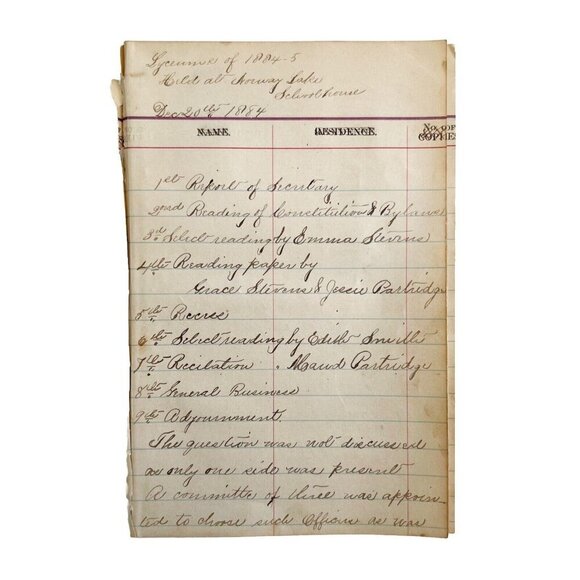 Lyceums of 1884-5
Held at Norway Lake
Schoolhouse
Dec 20th 1884
NAME. RESIDENCE. No. OF COPIES
1st Report of Secretary
2nd Reading of Constitution & Bylaws
3d Select reading by Emma Stevens
4th Reading paper by
Grace Stevens & Jessie Partridge
5th Recess
6th Select reading by Edith Smith
7th Recitation " Maud Partridge
8th General Business
9th Adjournment.
The question was not discussed
as only one side was present
A committe of three was appoin-
ted to choose such Officers as was